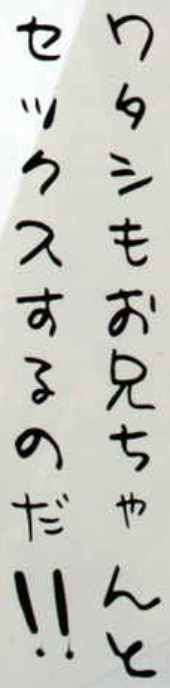 ワタシもお兄ちゃんと
セックスするのだ!!